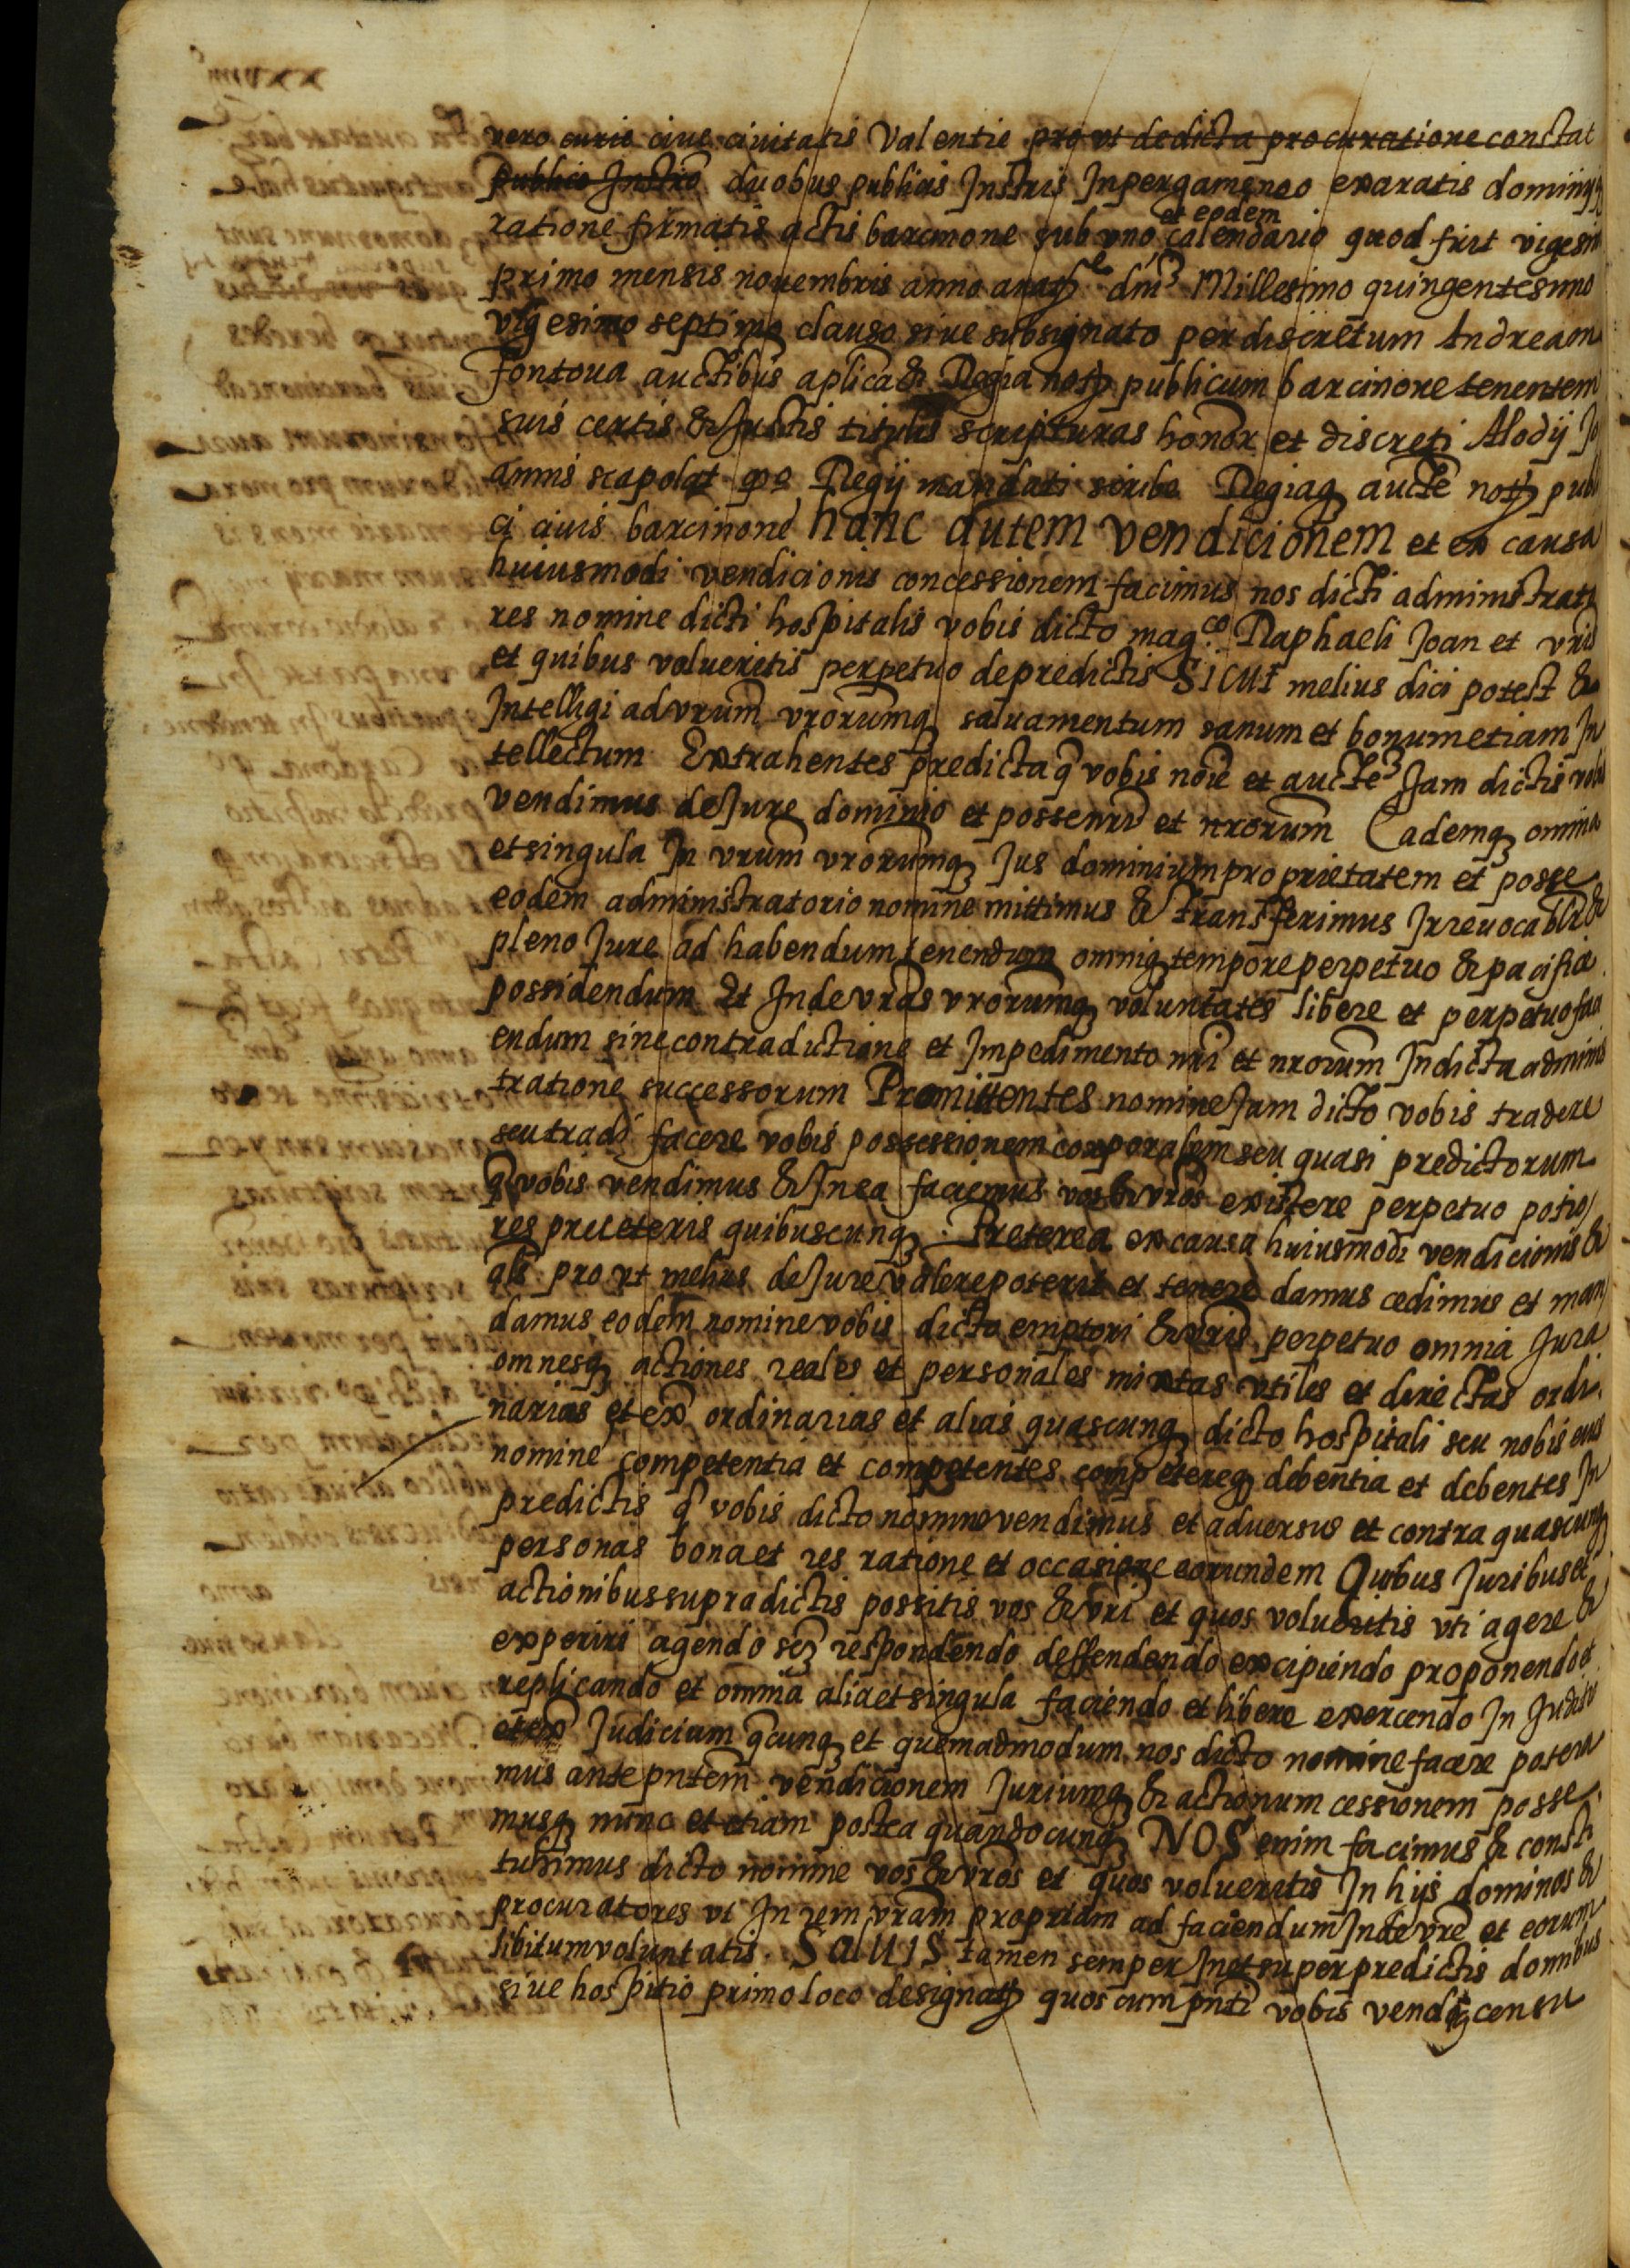 vero curie eius civitatis Valentie pro ut dedicta procuratione constat
publico Instro duobus publicis Instris Inpergameneo exaratis dominij
ratione firmatis actis barcinone sub vno et eodem calendario quod fuit vigesi
primo mensis nouembris anno anaty dni Millesimo quingentesimo
vigesimo septimo clauso siue subsignato per discretum Andream
fontoua auctibus aplica & Regia noty publicum barcinone tenentem
suis certis & Justis titulis scripturas honor et discreti Alodij Jo
annis scapolat qo Regij mandati scribe Regiaq aucte noty publi
ci ciuis barcinone hanc autem vendicionem et ex causa
huiusmodi vendicionis concessionem facimus nos dicti administrato
res nomine dicti hospitalis vobis dicto mag.co Raphaeli Joan et vris
et quibus volueritis perpetuo depredictis Sicut melius dici potest &
Intelligi ad vrum vrorumq saluamentum sanum et bonum etiam In
tellectum Extrahentes predicta q vobis noie et aucte Jam dictis vobis
vendimus de Jure dominio et posse nro et nrorum Eademq omnia
et singula In vrum vrorumq Jus dominium proprietatem et posse
eodem administratorio nomine mittimus & transferimus Irreuocabilr &
pleno Jure ad habendum tenendum omniq tempore perpetuo & pacifice
possidendum Et Inde vras vrorumq voluntates libere et perpetuo faci
endum sine contradictione et Impedimento nri et nrorum In dicta adminis
tratione successorum Promittentes nomine Jam dicto vobis tradere
seu tradi facere vobis possessionem corporalem seu quasi predictorum
q vobis vendimus & In ea faciemus vos & vros existere perpetuo potio
res preceteris quibuscunq Preterea ex causa huiusmodi vendicionis &
als pro ut melius de Jure valere poterit et tenere damus cedimus et man
damus eodem nomine vobis dicto emptori & vris perpetuo omnia Jura
omnesq actiones reales et personales mixtas vtiles et directas ordi
narias et ex ordinarias et alias quascunq dicto hospitali seu nobis eius
nomine competentia et competentes competereq debentia et debentes In
predictis q vobis dicto nomine vendimus et aduersus et contra quascunq
personas bona et res ratione et occasione eorundem Quibus Juribus et
actionibus supradictis possitis vos & vri et quos volueritis vti agere &
experiri agendo scz respondendo deffendendo excipiendo proponendo et
replicando et omnia alia et singula faciendo et libere exercendo In Judicio
et ex Judicium qcunq et quemadmodum nos dicto nomine facere potera
mus ante pntem vendicionem Juriumq & actionum cessionem posse
musq nunc et etiam postea quandocunq NOS enim facimus & consti
tuhimus dicto nomine vos & vros et quos volueritis In hijs dominos &
procuratores vt In rem vram propriam ad faciendum Inde vre et eorum
libitum voluntatis. Saluis tamen semper In et super predictis domibus
siue hospitio primo loco designaty quos cum pnti vobis vendq censu